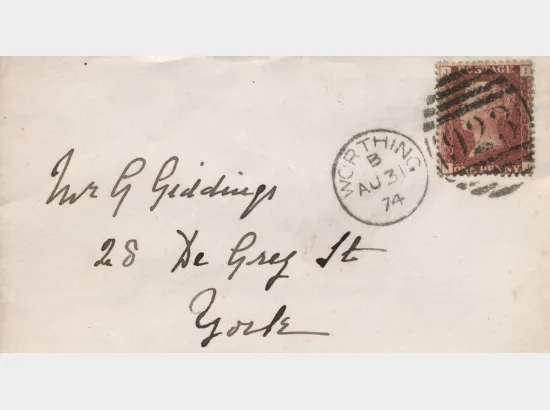 Mr G Giddings
28 De Grey St
York
WORTHING
B
AU 31
74
POSTAGE
ONE PENNY